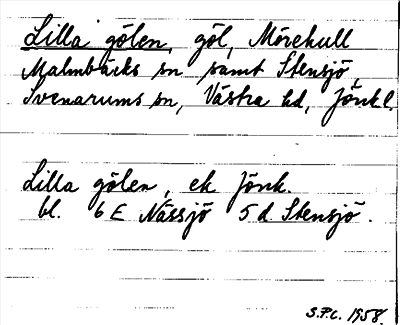 Lilla gölen, göl, Mörekull
Malmbäcks sn samt Stensjö,
Svenarums sn, Västra hd, Jönk l.
Lilla gölen, ek Jönk.
bl. 6 E Nässjö 5 d. Stensjö.
S.F.L. 1958.